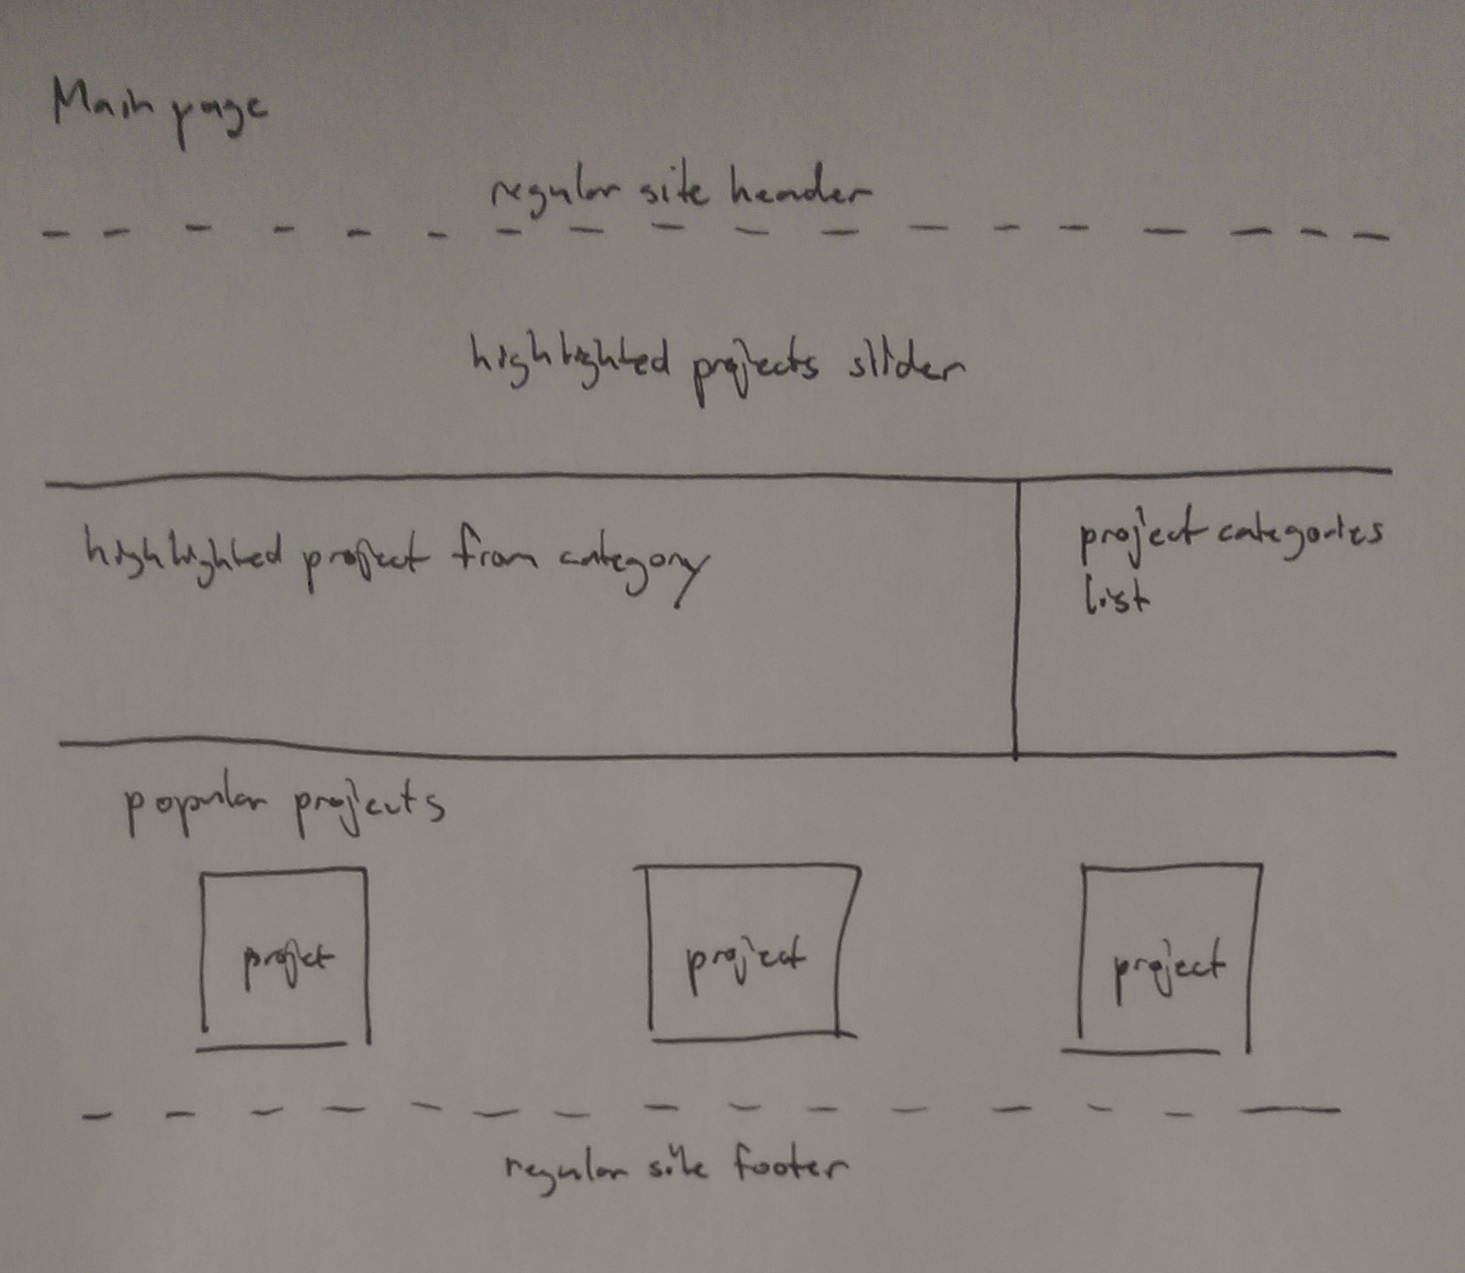 Main page
regular site header
highlighted projects slider
highlighted project from category
project categories
list
popular projects
project
project
project
regular site footer